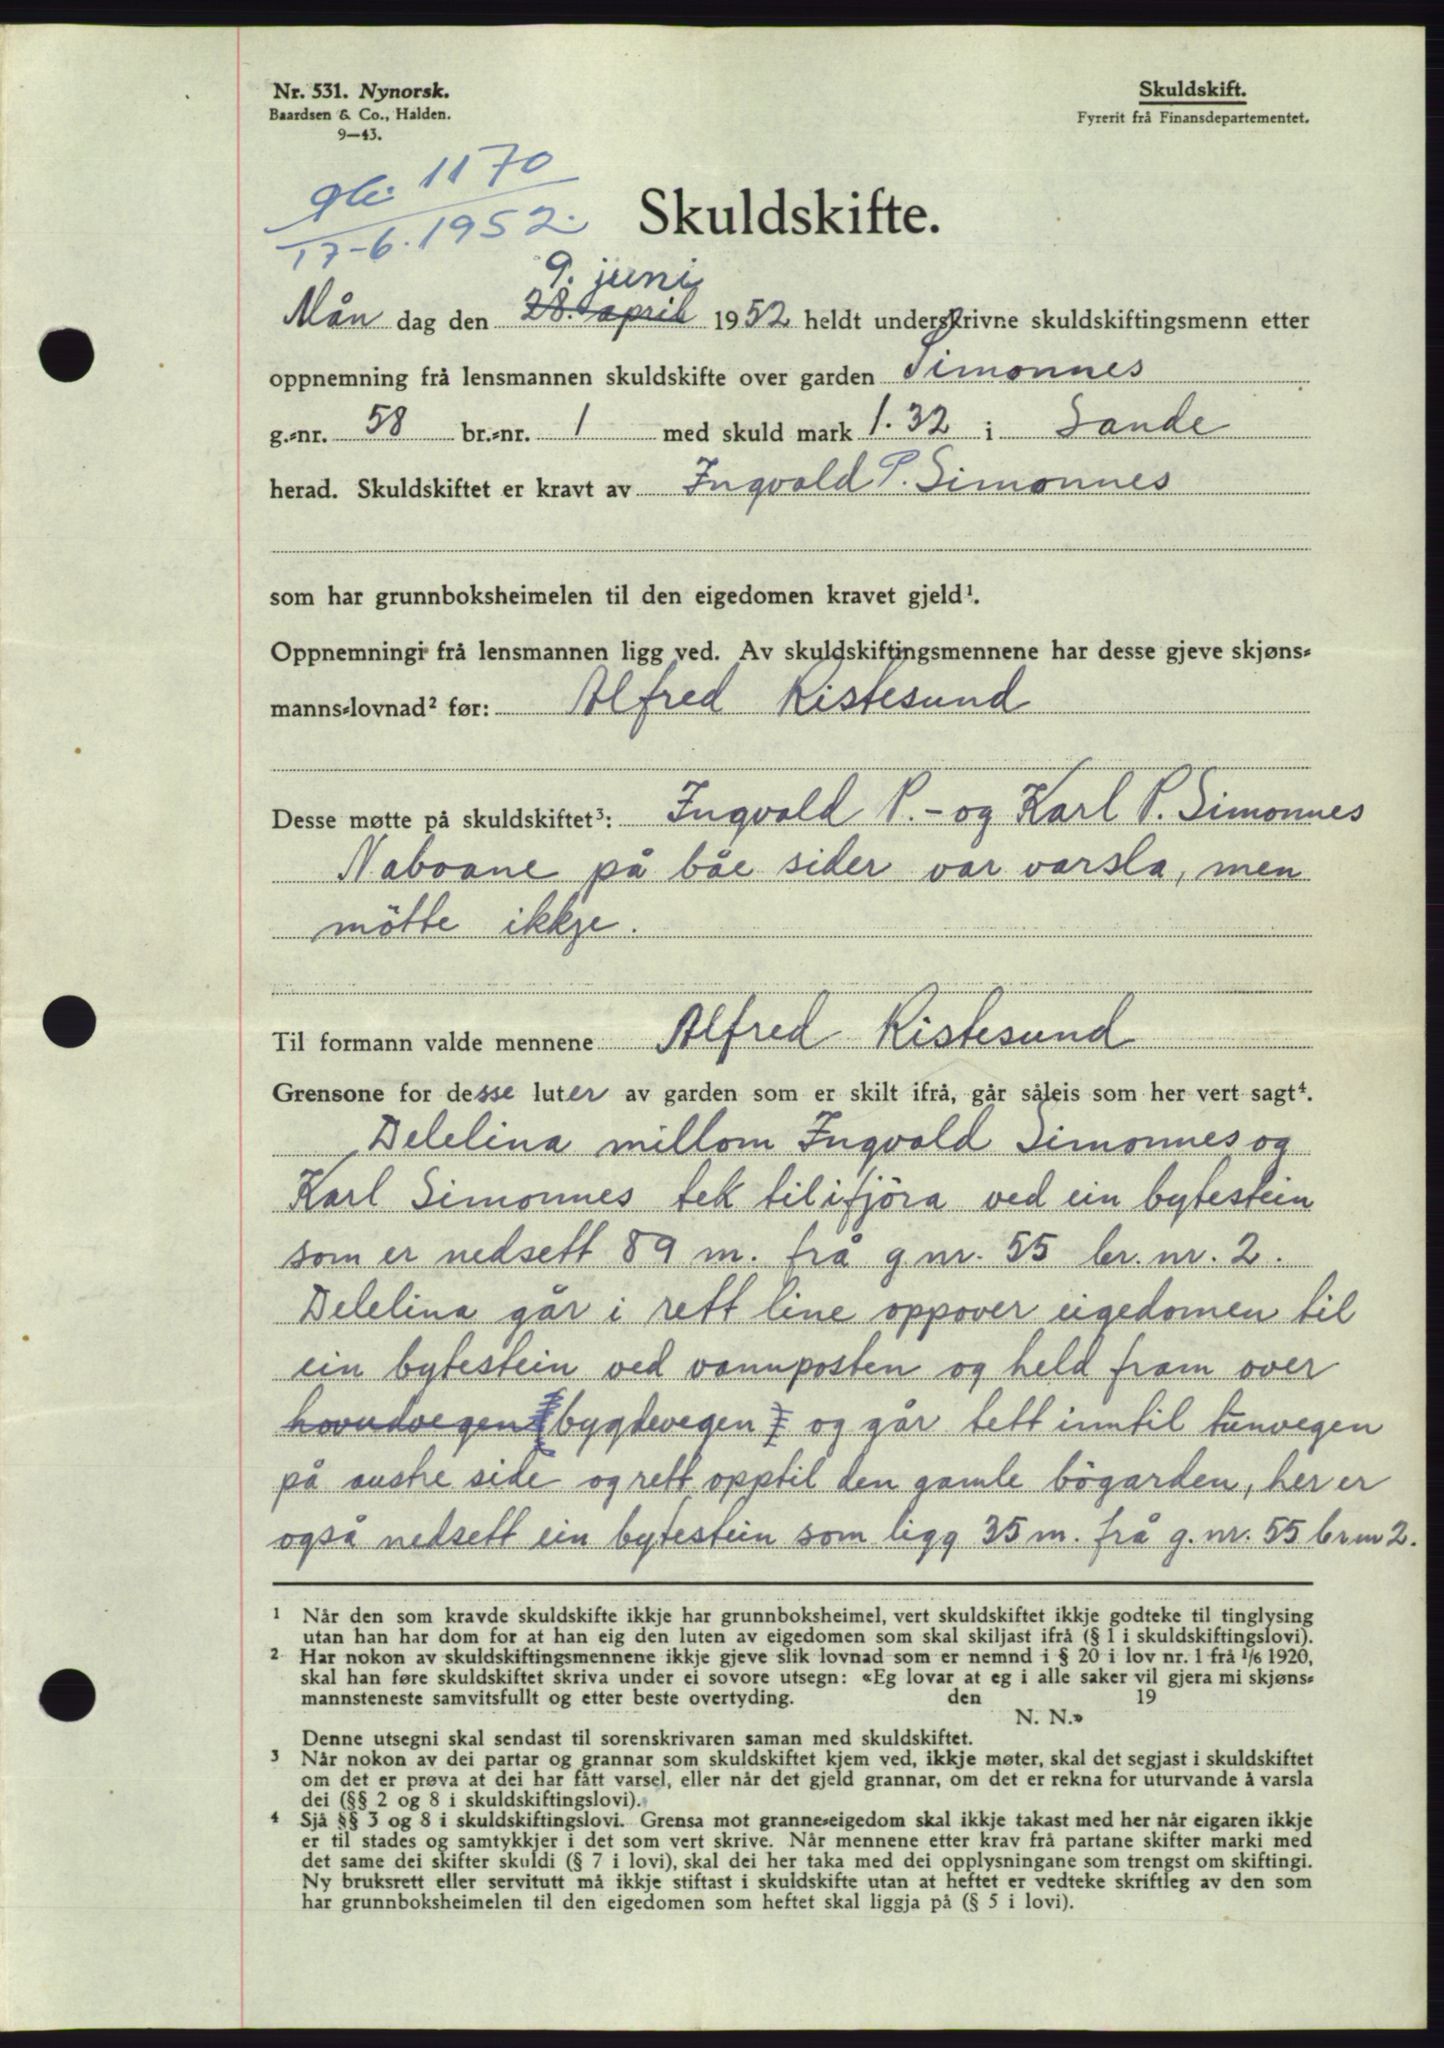 Nr. 531. Nynorsk.
Baardsen & Co., Halden.
9—43.
Skuldskift.
Fyrerit frå Finansdepartementet.
1170
17-6. 1952.
Skuldskifte.
9. juni
Mån dag den 28. april 1952 heldt underskrivne skuldskiftingsmenn etter
oppnemning frå lensmannen skuldskifte over garden Simonnes
g.-nr. 58 br.-nr. 1 med skuld mark 1.32 i Sande
herad. Skuldskiftet er kravt av Ingvald P. Simonnes
som har grunnboksheimelen til den eigedomen kravet gjeld¹.
Oppnemningi frå lensmannen ligg ved. Av skuldskiftingsmennene har desse gjeve skjøns-
manns-lovnad² før: Alfred Kistesund
Desse møtte på skuldskiftet³: Ingvald P. - og Karl P. Simonnes
Naboane på båe sider var varsla, men
mötte ikkje.
Til formann valde mennene Alfred Kistesund
Grensone for desse luter av garden som er skilt ifrå, går såleis som her vert sagt⁴.
Delelina millom Ingvald Simonnes og
Karl Simonnes tek til i fjöra ved ein bytestein
som er nedsett 89 m. frå g nr. 55 br. nr. 2.
Delelina går i rett line oppover eigedomen til
ein bytestein ved vannposten og held fram over
hovudvegen bygdevegen og går tett inntil tunvegen
på austre side og rett opptil den gamle bögarden, her er
også nedsett ein bytestein som ligg 35 m. frå g. nr. 55 br nr 2.
1 Når den som kravde skuldskifte ikkje har grunnboksheimel, vert skuldskiftet ikkje godteke til tinglysing
utan han har dom for at han eig den luten av eigedomen som skal skiljast ifrå (§ 1 i skuldskiftingslovi).
2 Har nokon av skuldskiftingsmennene ikkje gjeve slik lovnad som er nemnd i § 20 i lov nr. 1 frå 1/6 1920,
skal han føre skuldskiftet skriva under ei sovore utsegn: «Eg lovar at eg i alle saker vil gjera mi skjøns-
mannsteneste samvitsfullt og etter beste overtyding. den 19
N. N.»
Denne utsegni skal sendast til sorenskrivaren saman med skuldskiftet.
3 Når nokon av dei partar og grannar som skuldskiftet kjem ved, ikkje møter, skal det segjast i skuldskiftet
om det er prøva at dei har fått varsel, eller når det gjeld grannar, om det er rekna for uturvande å varsla
dei (§§ 2 og 8 i skuldskiftingslovi).
4 Sjå §§ 3 og 8 i skuldskiftingslovi. Grensa mot granne-eigedom skal ikkje takast med her når eigaren ikkje
er til stades og samtykkjer i det som vert skrive. Når mennene etter krav frå partane skifter marki med
det same dei skifter skuldi (§ 7 i lovi), skal dei her taka med dei opplysningane som trengst om skiftingi.
Ny bruksrett eller servitutt må ikkje stiftast i skuldskifte utan at heftet er vedteke skriftleg av den som
har grunnboksheimelen til den eigedomen som heftet skal liggja på (§ 5 i lovi).